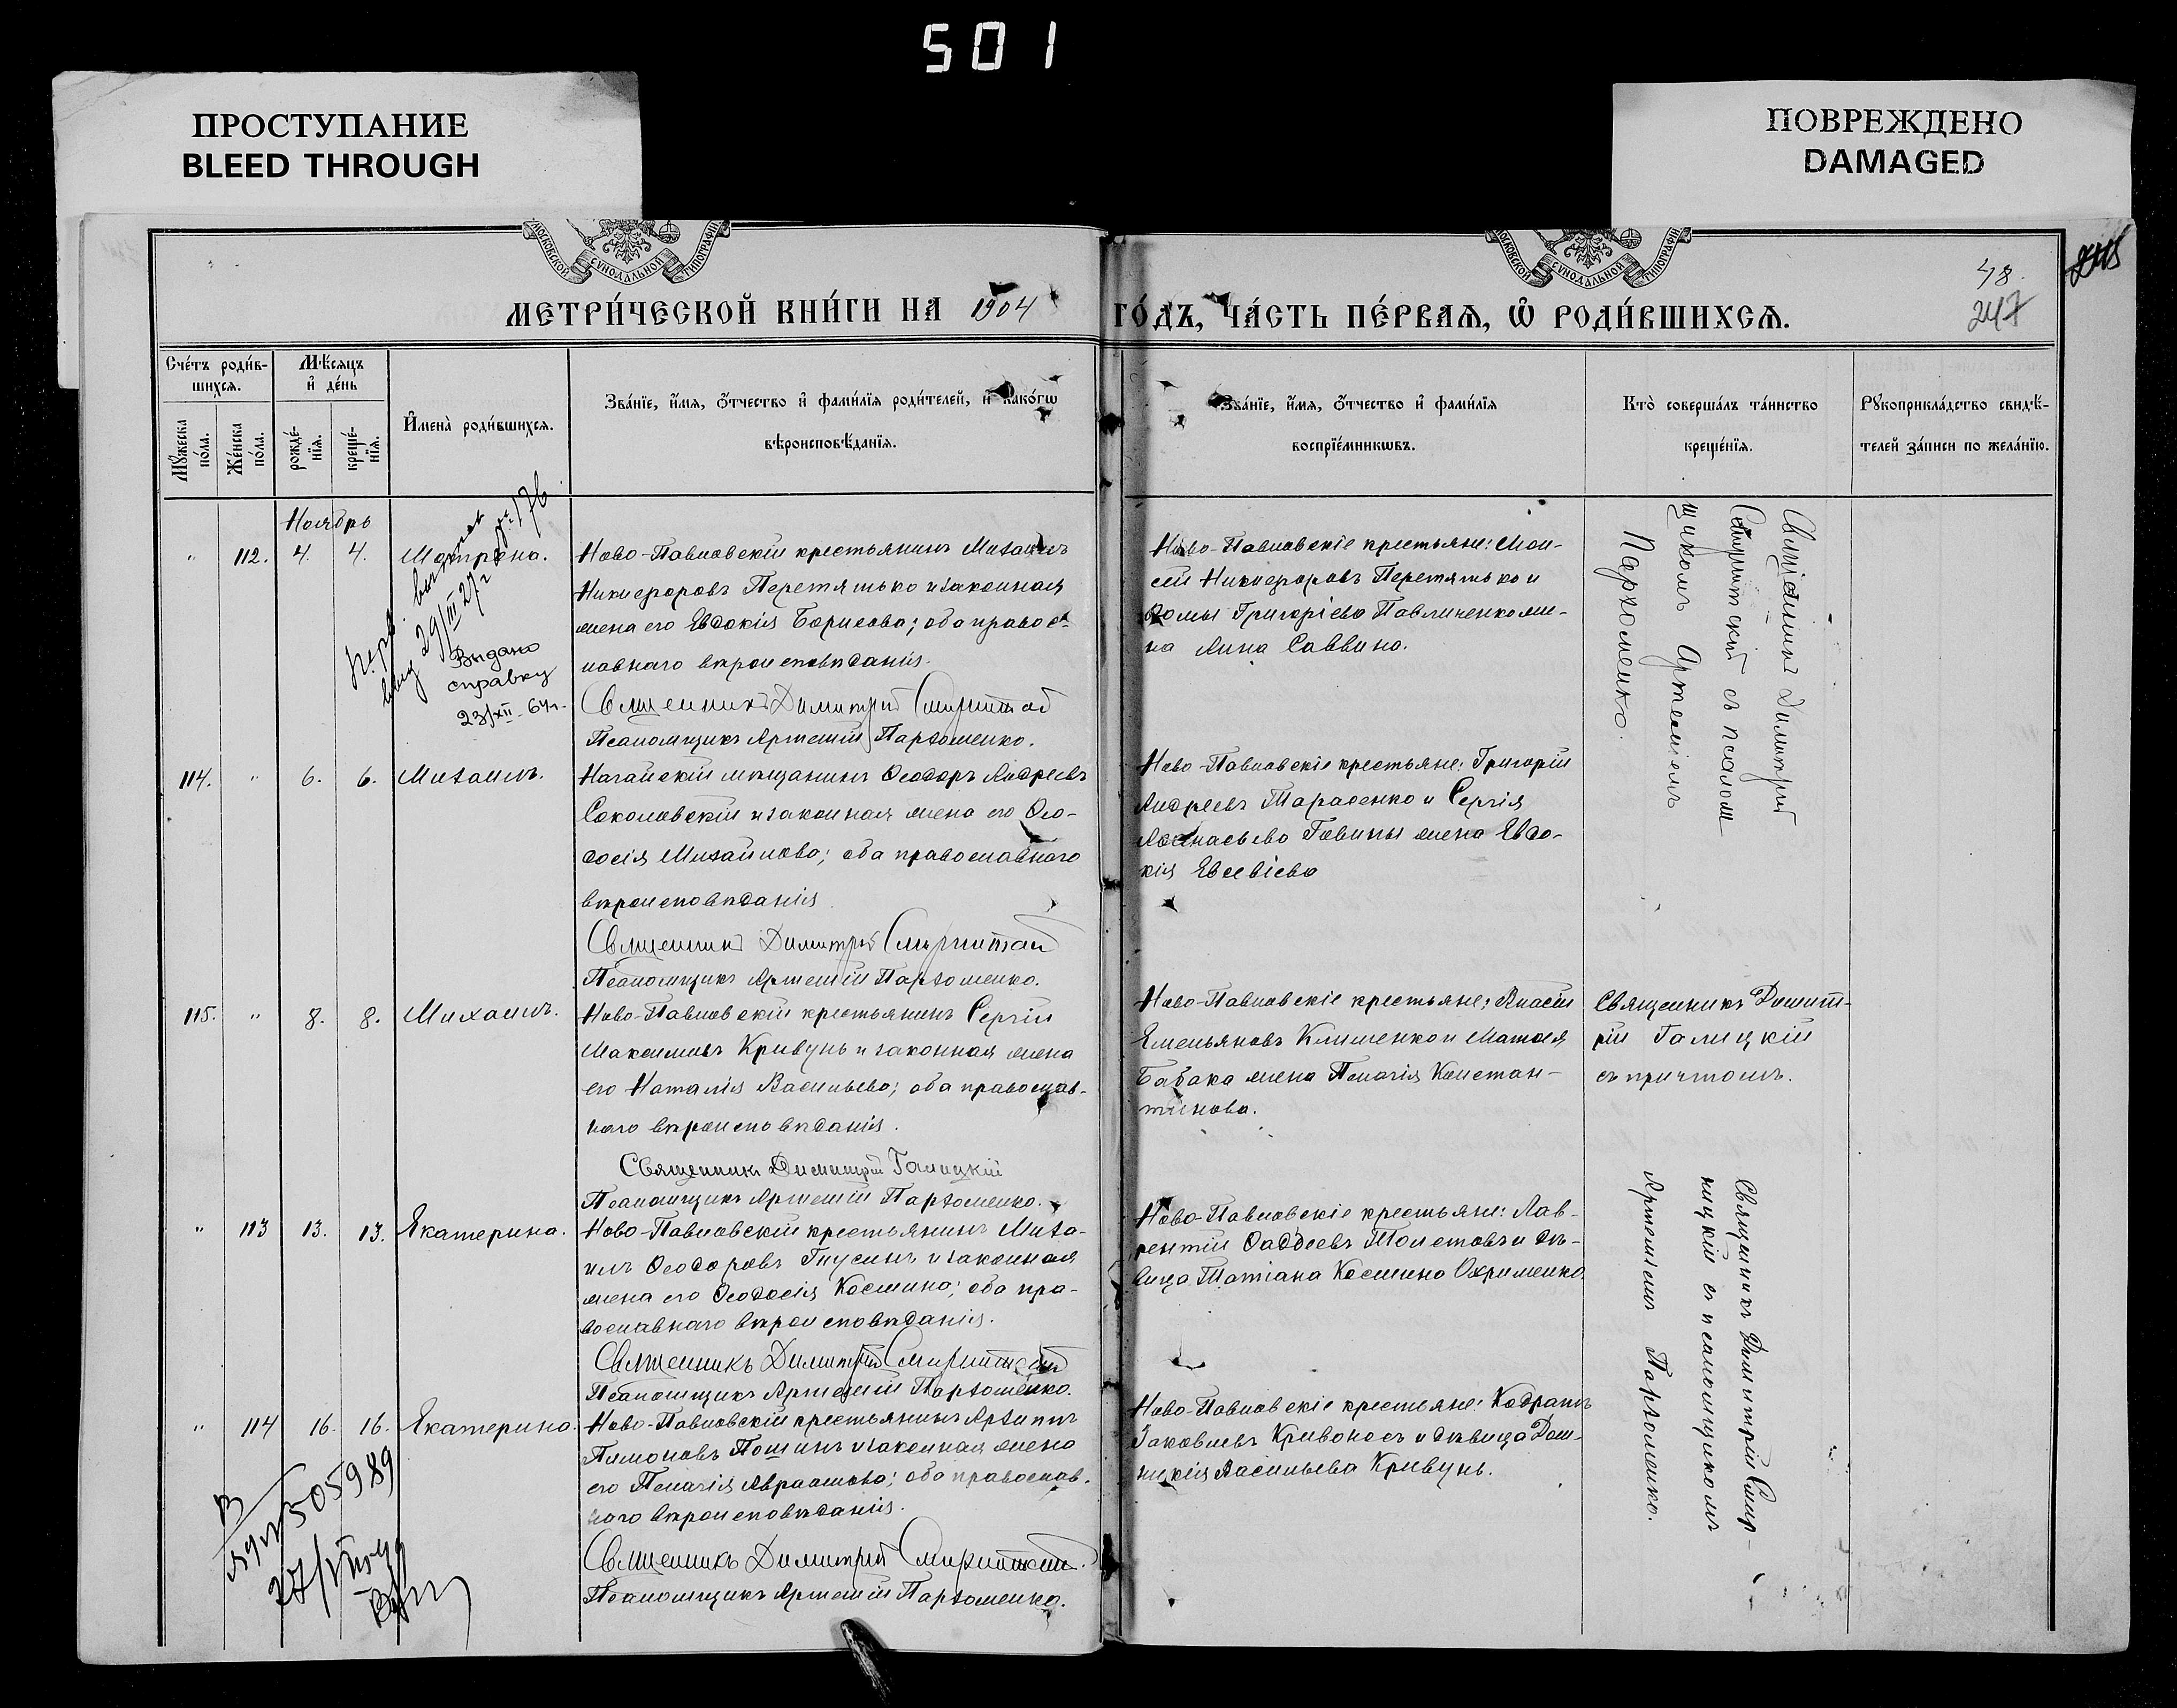 501
ПРОСТУПАНИЕ
BLEED THROUGH
ПОВРЕЖДЕНО
DAMAGED
МОСКОВСКОЙ СѴНОДАЛЬНОЙ ТИПОГРАФІИ
МОСКОВСКОЙ СѴНОДАЛЬНОЙ ТИПОГРАФІИ
48.
247
МЕТРИ́ЧЕСКОЙ КНИ́ГИ НА 1904 ГО́ДЪ, ЧА́СТЬ ПЕ́РВАѦ, Ѽ РОДИ́ВШИХСѦ.
Сче́тъ роди́в-
шихсѧ.
Мꙋ́жеска
по́ла.
Же́нска
по́ла.
Мѣ́сѧцъ
и҆ де́нь
рожде́-
нїѧ.
креще́-
нїѧ.
И҆мена̀ роди́вшихсѧ.
Зва́нїе, и҆́мѧ, ѻ҆́тчество и҆ фами́лїѧ роди́телей, и҆ како́гѡ
вѣроисповѣ́данїѧ.
Зва́нїе, и҆́мѧ, ѻ҆́тчество и҆ фами́лїѧ
воспрїе́мникѡвъ.
Кто̀ соверша́лъ та́инство
креще́нїѧ.
Рꙋкоприкла́дство свидѣ́-
телей за́писи по жела́нїю.
Ноябрь
" 112. 4. 4. Матрона.
Ново-Павловскій крестьянинъ Михаилъ
Никифоровъ Перетятько и законная
жена его Евдокія Борисова; оба правос-
лавнаго вѣроисповѣданія.
Священникъ Димитрій
Псаломщикъ Артемій Пархоменко.
29/III 27г
Выдано
справку
23/XII-64г.
Ново-Павловскіе крестьяне: Мои-
сей Никифоровъ Перетятько и
Ѳомы Григоріева Павличенко же-
на Анна Саввина.
Священникъ Димитрій
съ псалом
щикомъ Артеміемъ
Пархоменко.
114. " 6. 6. Михаилъ.
Ногайскій мѣщанинъ Ѳеодоръ Андреевъ
Соколовскій и законная жена его Ѳео-
досія Михайлова; оба православнаго
вѣроисповѣданія.
Священникъ Димитрій
Псаломщикъ Артемій Пархоменко.
Ново-Павловскіе крестьяне: Григорій
Андреевъ Тарасенко и Сергія
Аѳанасьева Говины жена Евдо-
кія Евсевіева
115. " 8. 8. Михаилъ.
Ново-Павловскій крестьянинъ Сергій
Максимовъ Кривунь и законная жена
его Наталія Васильева; оба православ-
наго вѣроисповѣданія.
Священникъ Димитрій Галицкій
Псаломщикъ Артемій Пархоменко.
Ново-Павловскіе крестьяне:
Емельяновъ Клименко и Матѳея
Бабака жена Пелагія Констан-
тинова.
Священникъ Димит-
рій Галицкій
съ причтомъ.
" 113 13. 13. Екатерина.
Ново-Павловскій крестьянинъ Миха-
илъ Ѳеодоровъ Гнусинъ и законная
жена его Ѳеодосія Космина; оба пра-
вославнаго вѣроисповѣданія.
Священникъ Димитрій
Псаломщикъ Артемій Пархоменко.
Ново-Павловскіе крестьяне: Лав-
рентій Ѳаддеевъ Толстовъ и дѣ-
вица Татіана Космина Охрименко.
Священникъ Димитрій
съ псаломщикомъ
Артеміемъ Пархоменко.
" 114 16. 16. Екатерина.
Ново-Павловскій крестьянинъ Архипъ
Пимоновъ Пошинъ и законная жена
его Пелагія Авраамова; оба православ-
наго вѣроисповѣданія.
Священникъ Димитрій
Псаломщикъ Артемій Пархоменко.
Ново-Павловскіе крестьяне: Кодратъ
Іаковлевъ Кривоносъ и дѣвица Дом-
никія Васильева Кривунь.
505989